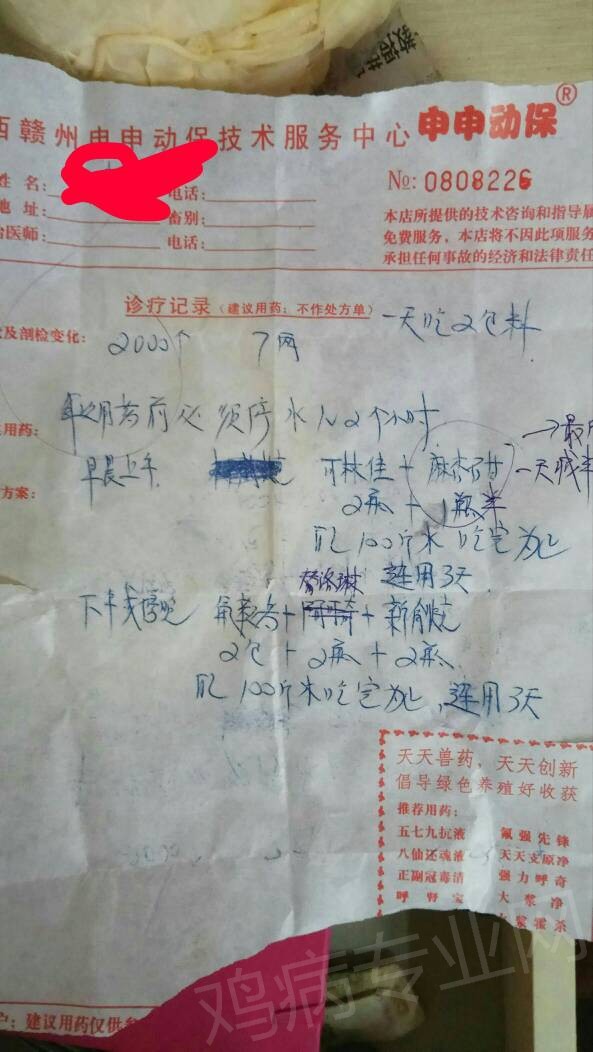 西赣州申申动保技术服务中心 申申动保®
姓名: 电话:
№: 0808226
地址: 畜别:
本店所提供的技术咨询和指导属
治医师: 电话:
免费服务，本店将不因此项服务
承担任何事故的经济和法律责任
诊疗记录（建议用药：不作处方单） 一天吃2包料
及剖检变化: 2000个 7两
用药: 用药前必须停水1~2个小时
→最后
早晨上午 可林佳 + 一天减半
方案: 2瓶 + 1瓶半
配100斤水吃完为止
替洛琳 连用3天
下午或傍晚 + + 新
2包 + 2瓶 + 2瓶
配100斤水吃完为止，连用3天
天天兽药，天天创新
倡导绿色养殖好收获
推荐用药:
五七九抗液 氟强先锋
八仙还魂液 天天支原净
正副冠毒清 强力呼奇
呼肾宝 大浆净
浆霍杀
户: 建议用药仅供参
鸡病专业网